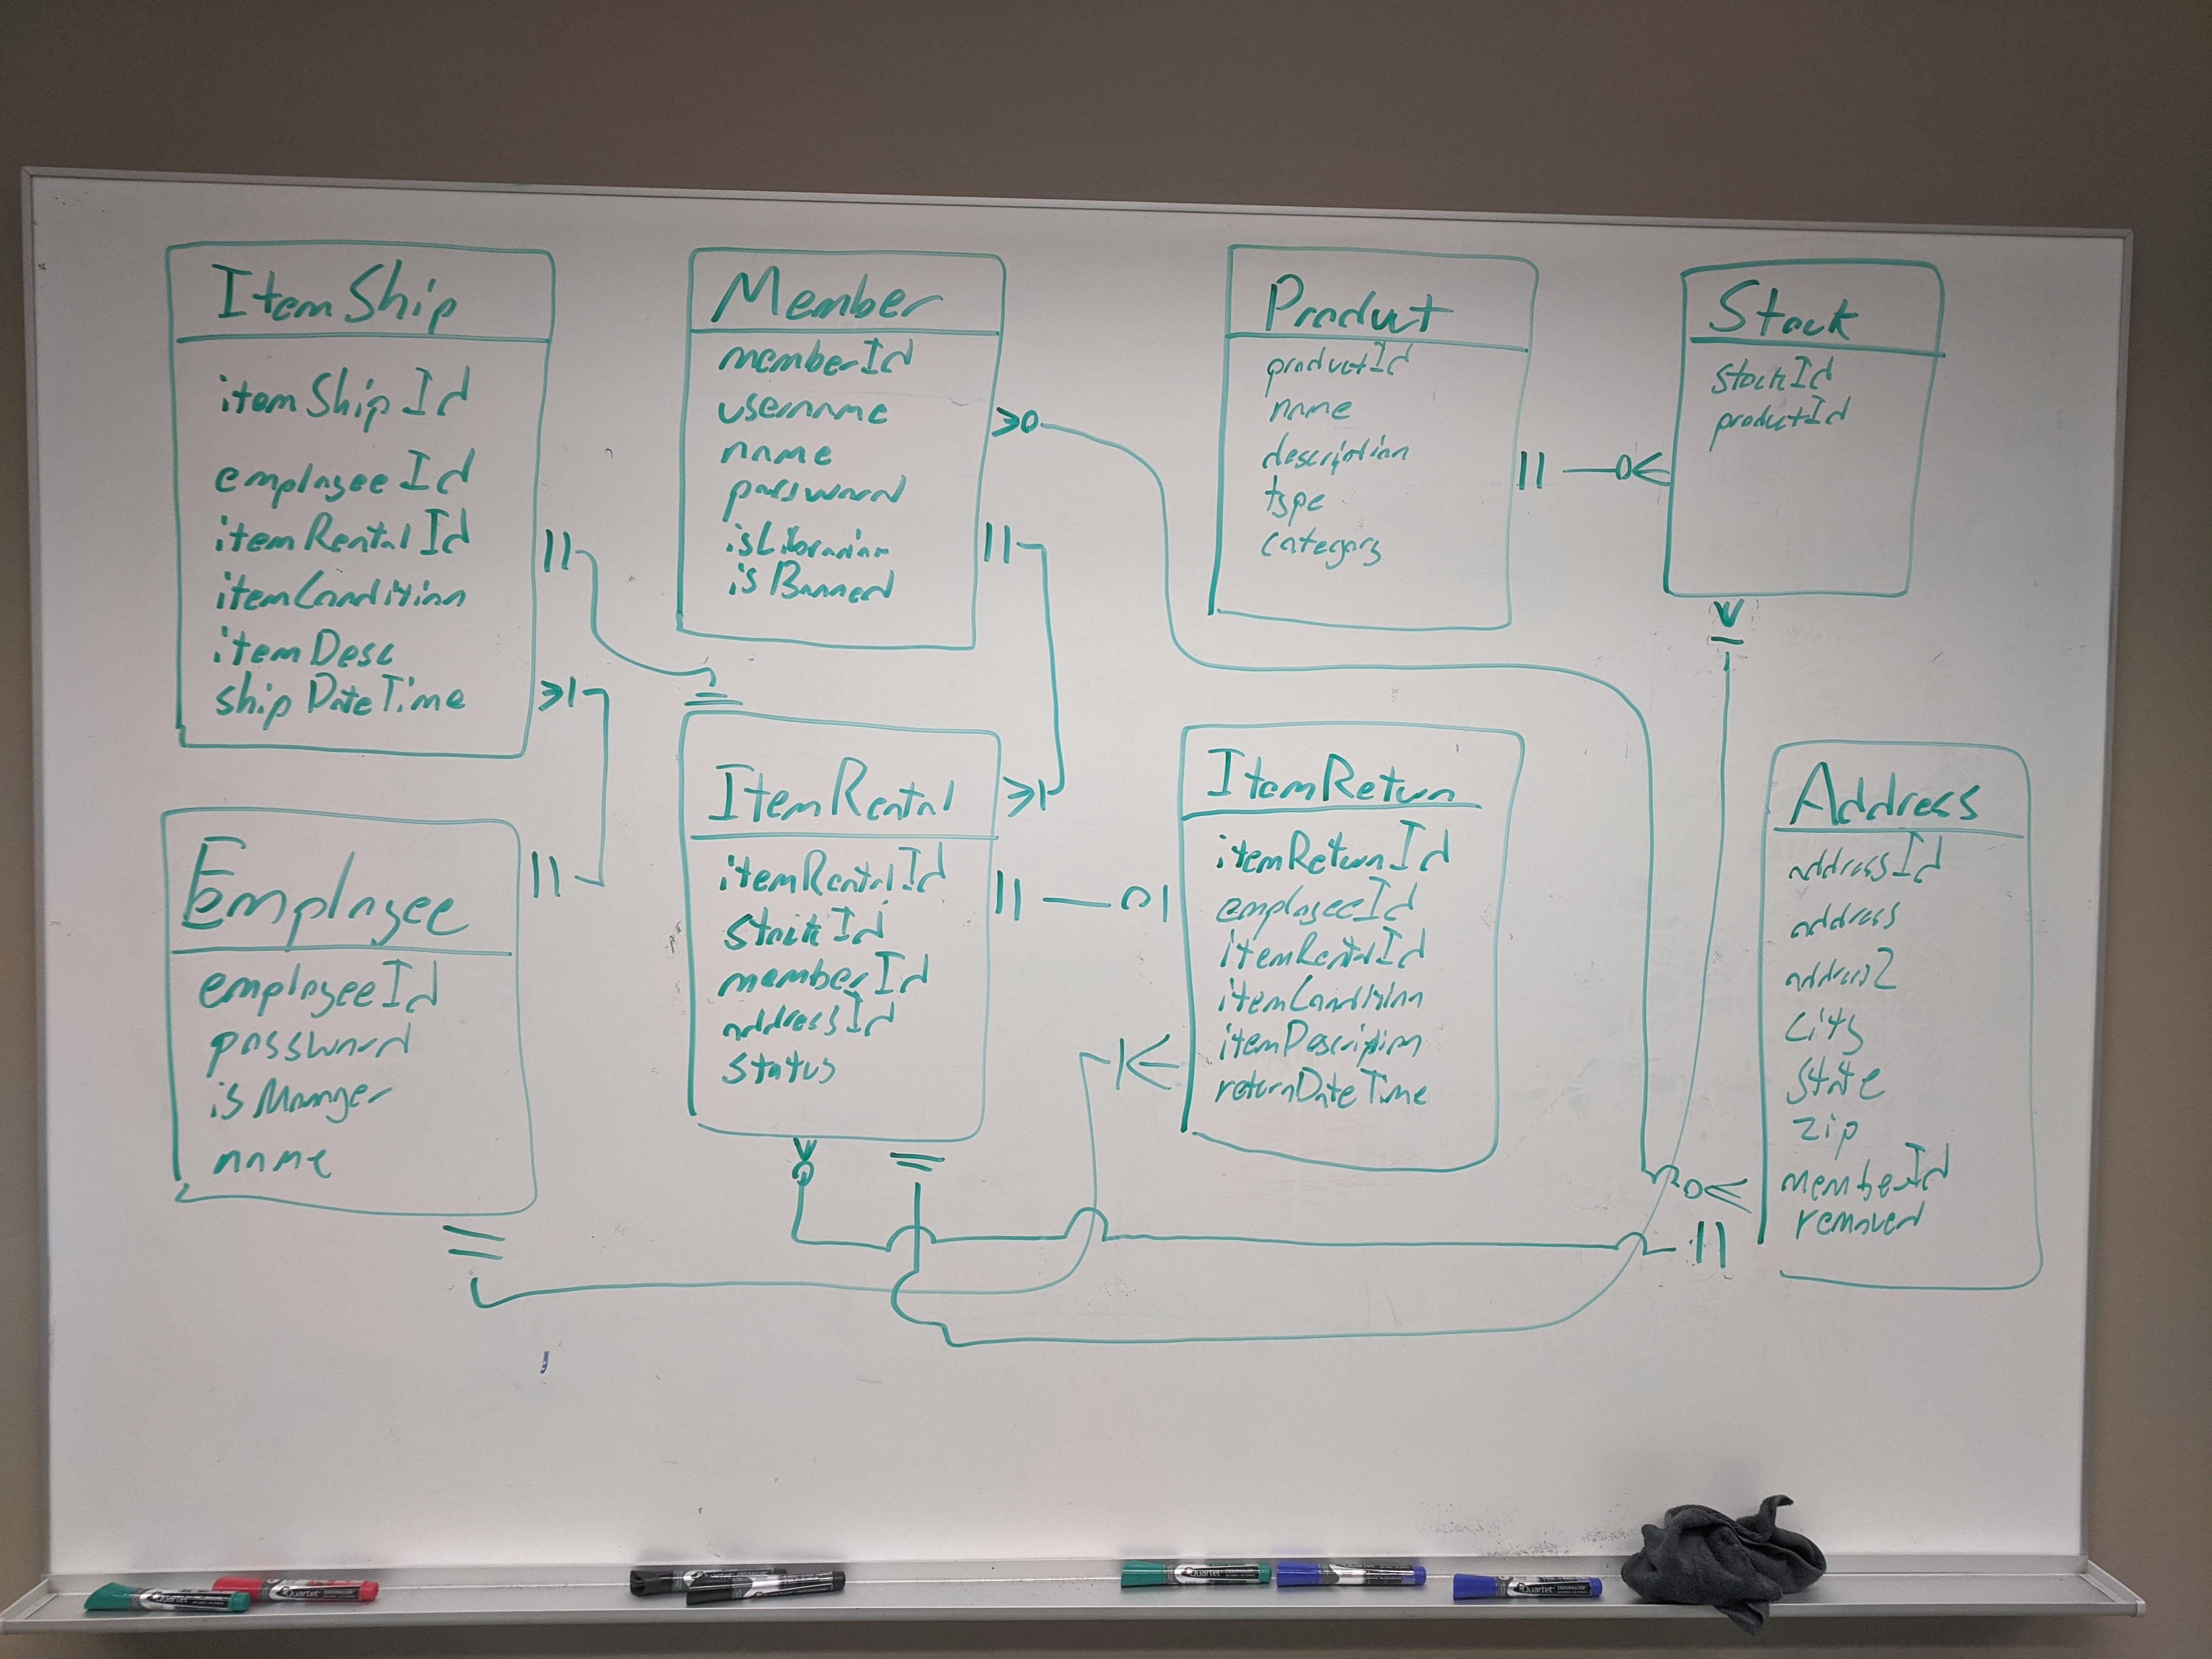 ItemShip
itemShipId
employeeId
itemRentalId
itemCondition
itemDesc
shipDateTime
Member
memberId
username
name
password
isLibrarian
isBanned
Product
productId
name
description
type
category
Stock
stockId
productId
Employee
employeeId
password
isManager
name
ItemRental
itemRentalId
stockId
memberId
addressId
status
ItemReturn
itemReturnId
employeeId
itemRentalId
itemCondition
itemDescription
returnDateTime
Address
addressId
address
address2
city
state
zip
memberId
removed
Quartet
Quartet
Quartet
Quartet
Quartet
Quartet